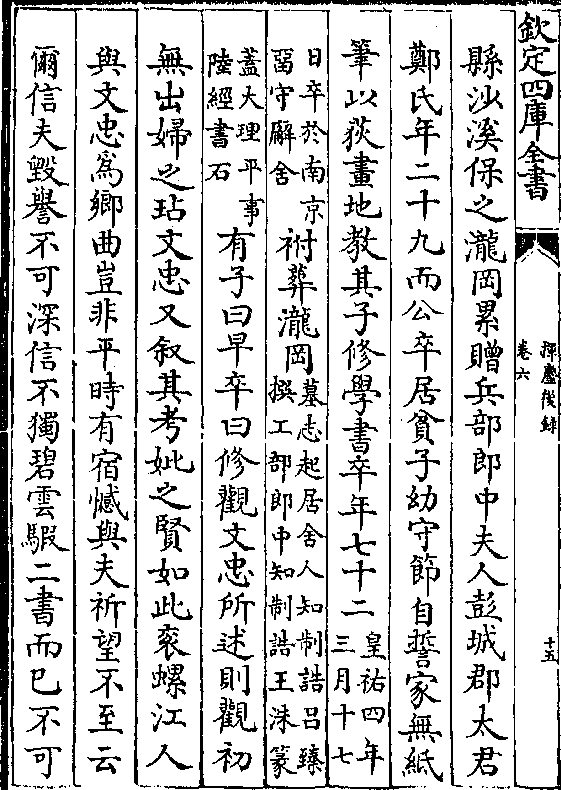 欽定四庫全書
揮麈後録
卷六
十五
縣沙溪保之瀧岡累贈兵部郎中夫人彭城郡太君
鄭氏年二十九而公卒居貧子幼守節自誓家無紙
筆以荻畫地教其子修學書卒年七十二皇祐四年三月十七
日卒於南京留守廨舍祔葬瀧岡墓志起居舍人知制誥吕臻撰工部郎中知制誥王洙篆
蓋大理平事陸經書石有子曰早卒曰修觀文忠所述則觀初
無出婦之玷文忠又叙其考妣之賢如此衮螺江人
與文忠為鄉曲豈非平時有宿憾與夫祈望不至云
爾信夫毀譽不可深信不獨碧雲騢二書而已不可